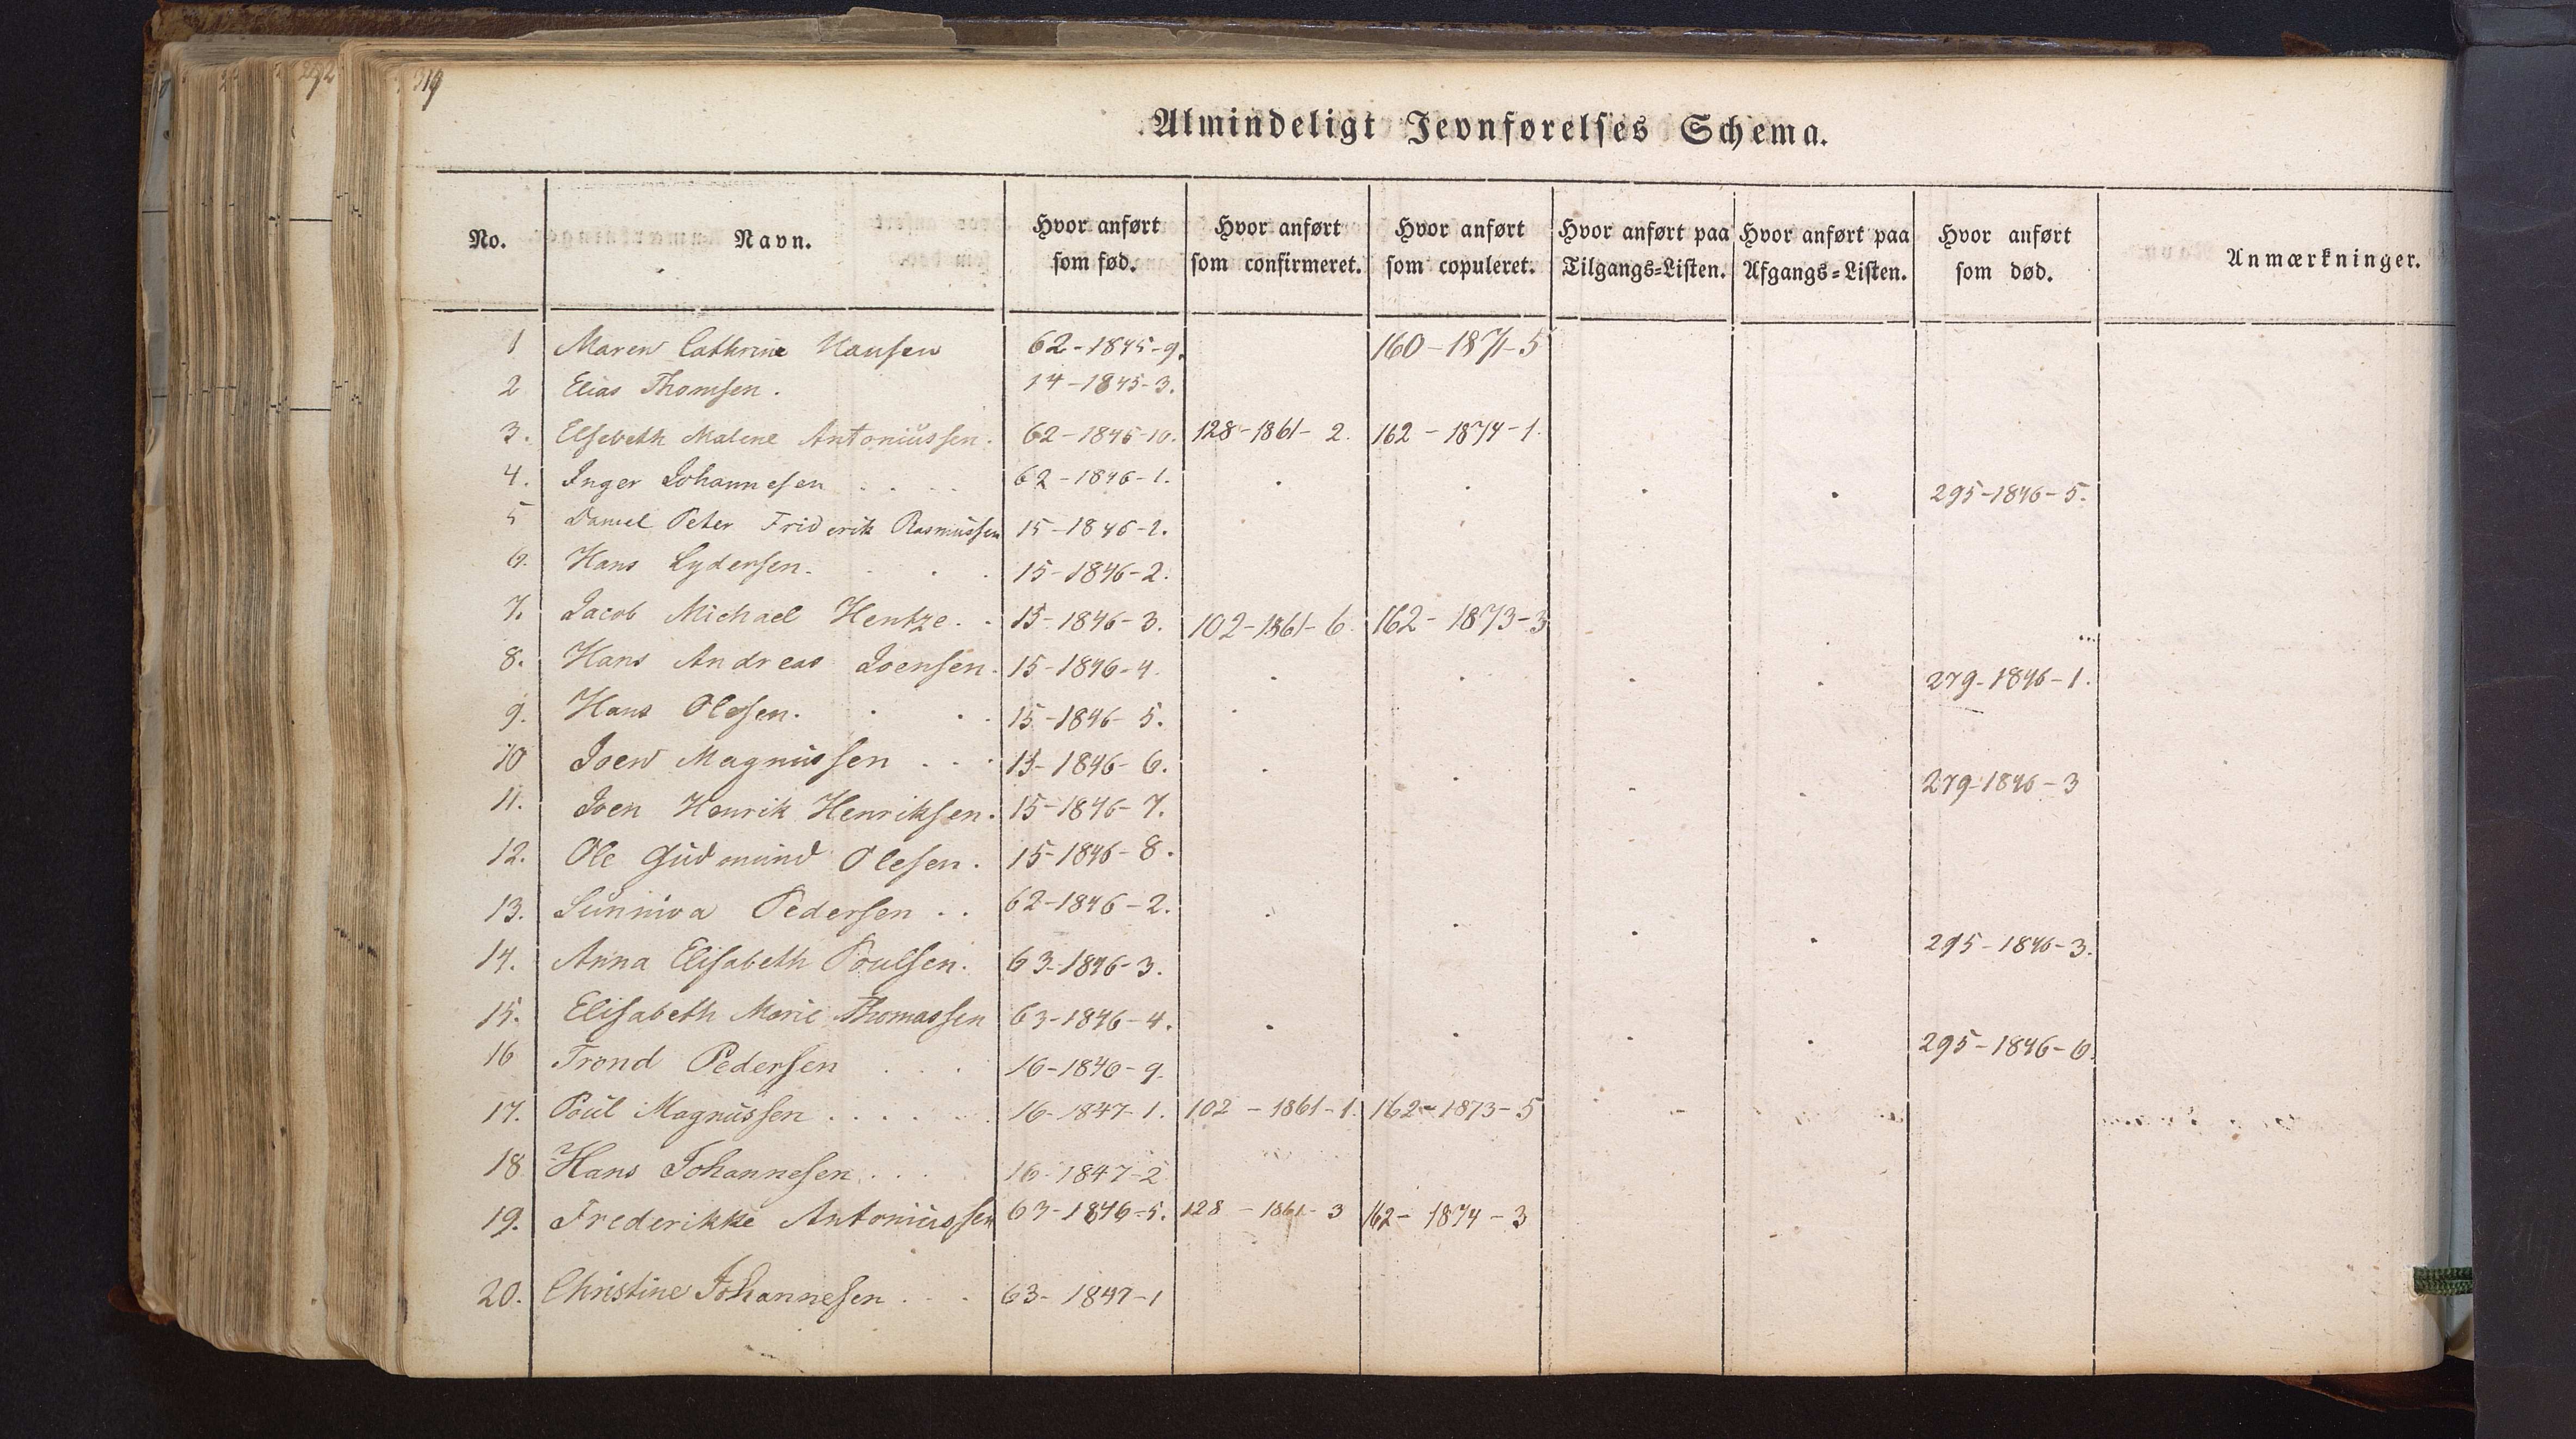 319
292
Almindeligt Jevnførelses Schema.
No. Navn. Hvor anført som fød. Hvor anført som confirmeret. Hvor anført som copuleret. Hvor anført paa Tilgangs=Listen. Hvor anført paa Afgangs=Listen. Hvor anført som død. Anmærkninger.
1 Maren Cathrine Hansen 62-1845-9. 160-1871-5
2 Elias Thomsen. 14-1845-3.
3. Elsebeth Malene Antoniussen. 62-1845-10. 128-1861-2. 162-1874-1.
4. Inger Johannesen 62-1846-1. 295-1846-5.
5 Daniel Peter Friderik Rasmussen 15-1846-1.
6. Hans Lydersen. 15-1846-2.
7. Jacob Michael Hentze. 15-1846-3. 102-1861-6. 162-1873-3
8. Hans Andreas Joensen. 15-1846-4. 279-1846-1.
9. Hans Olesen. 15-1846-5.
10 Joen Magnussen 15-1846-6. 279-1846-3
11. Joen Henrik Henriksen. 15-1846-7.
12. Ole Gudmund Olesen. 15-1846-8.
13. Sunniva Pedersen 62-1846-2. 295-1846-3.
14. Anna Elisabeth Poulsen. 63-1846-3.
15. Elisabeth Marie Thomassen 63-1846-4. 295-1846-6.
16 Trond Pedersen 16-1846-9.
17. Poul Magnussen 16-1847-1. 102-1861-1. 162-1873-5
18 Hans Johannesen 16-1847-2
19. Frederikke Antoniussen 63-1846-5. 128-1861-3 162-1874-3
20. Christine Johannesen 63-1847-1